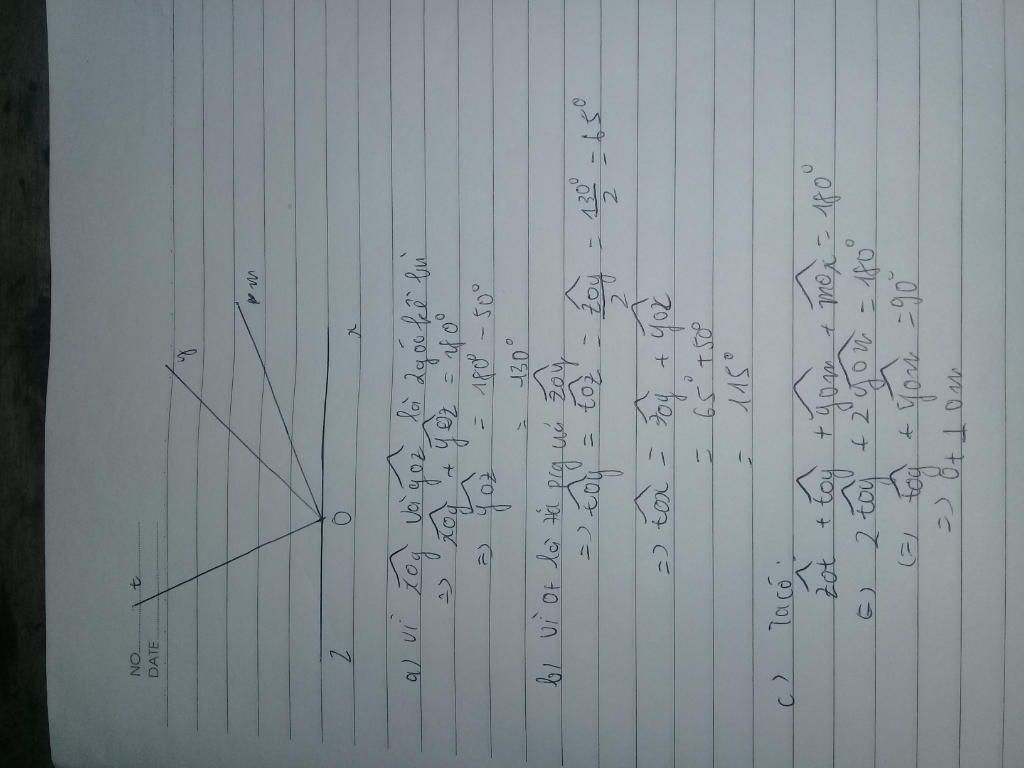 NO.
DATE
t
y
m
z O x
a) Vì xOy và yOz là 2 góc kề bù
=> xOy + yOz = 180°
=> yOz = 180° - 50°
= 130°
b) Vì Ot là tia p/g của zOy
=> tOy = tOz = zOy/2 = 130°/2 = 65°
=> tOx = tOy + yOx
= 65° + 50°
= 115°
c) Ta có:
zOt + tOy + yOm + mOx = 180°
(=) 2 tOy + 2 yOm = 180°
(=) tOy + yOm = 90°
=> Ot ⊥ Om